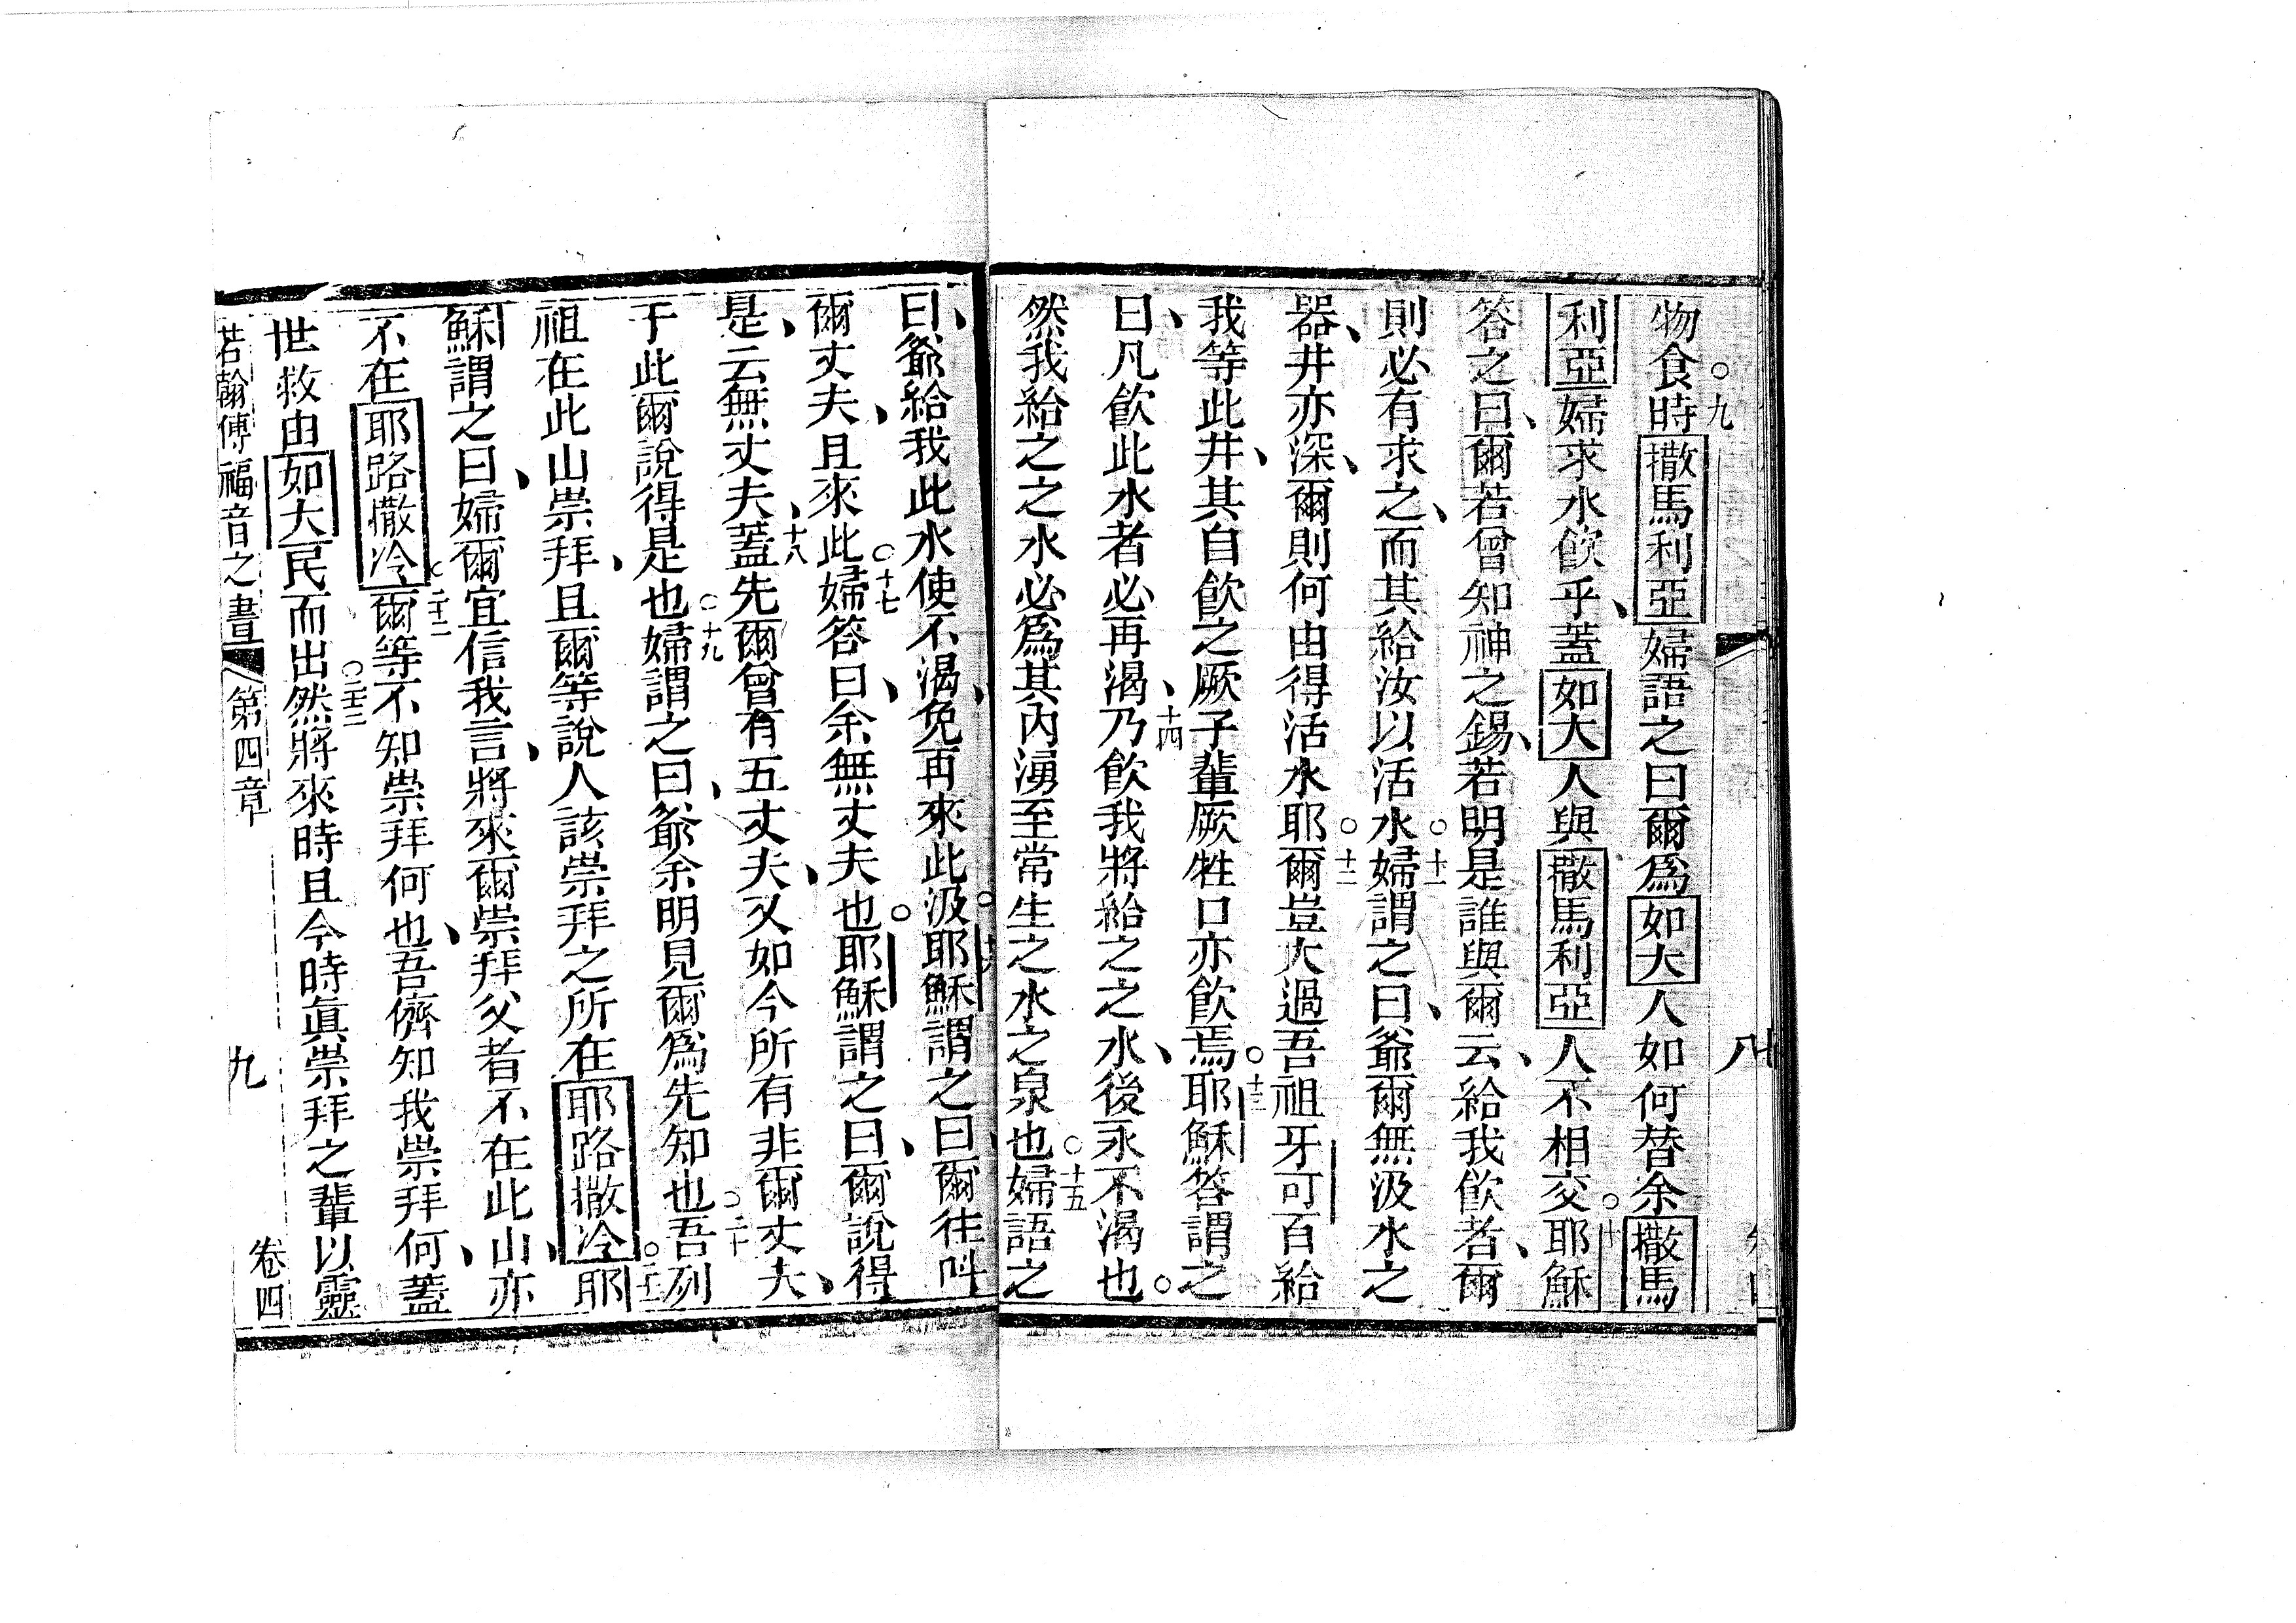 八
物食時撒馬利亞婦語之曰爾爲如大人如何替余撒馬
○九
利亞婦求水飲乎、蓋如大人與撒馬利亞人不相交○十耶穌
答之曰、爾若曾知神之錫、若明是誰與爾云、給我飲者、爾
則必有求之、而其給汝以活水○十一婦謂之曰、爺爾無汲水之
器、井亦深、爾則何由得活水耶○十二爾豈大過吾祖牙可百給
我等此井、其自飲之厥子輩厥牲口亦飲焉○十三耶穌答謂之
曰、凡飲此水者必再渴、十四乃飲我將給之之水、後永不渴也。
然我給之之水必爲其內湧至常生之水之泉也○十五婦語之
曰、爺給我此水使不渴、免再來此汲○十六耶穌謂之曰、爾往呌
爾丈夫、且來此○十七婦答曰、余無丈夫也○耶穌謂之曰、爾說得
是、云無丈夫、十八蓋先爾曾有五丈夫、又如今所有非爾丈夫、
于此爾說得是也○十九婦謂之曰、爺余明見爾爲先知也○二十吾列
祖在此山崇拜、且爾等說人該崇拜之所在耶路撒冷○二十一耶
穌謂之曰、婦爾宜信我言、將來爾崇拜父者不在此山、亦
不在耶路撒冷○二十二爾等不知崇拜何也、吾儕知我崇拜何、蓋
世救由如大民而出○二十三然將來時且今時眞崇拜之輩以靈
若翰傳福音之書 第四章 九 卷四